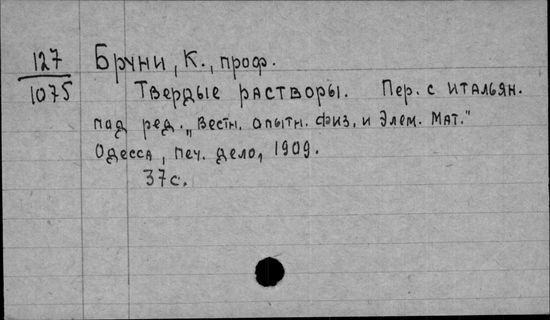 127
1075
Бруни, К., проф.
Твердые растворы. Пер. с итальян.
под ред. „Вестн. опытн. физ. и Элем. Мат."
Одесса, печ. дело, 1909.
37 с.